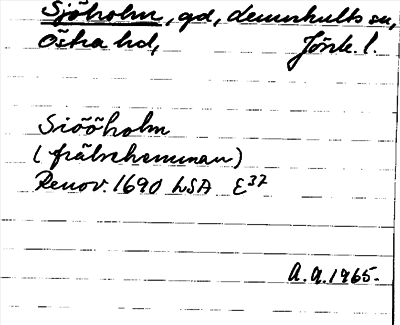 Sjöholm, gd, Linneryds sn,
Östra hd,
Siööholm
(frälsehemman)
Renov. 1690 LSA E37
A.A. 1965.